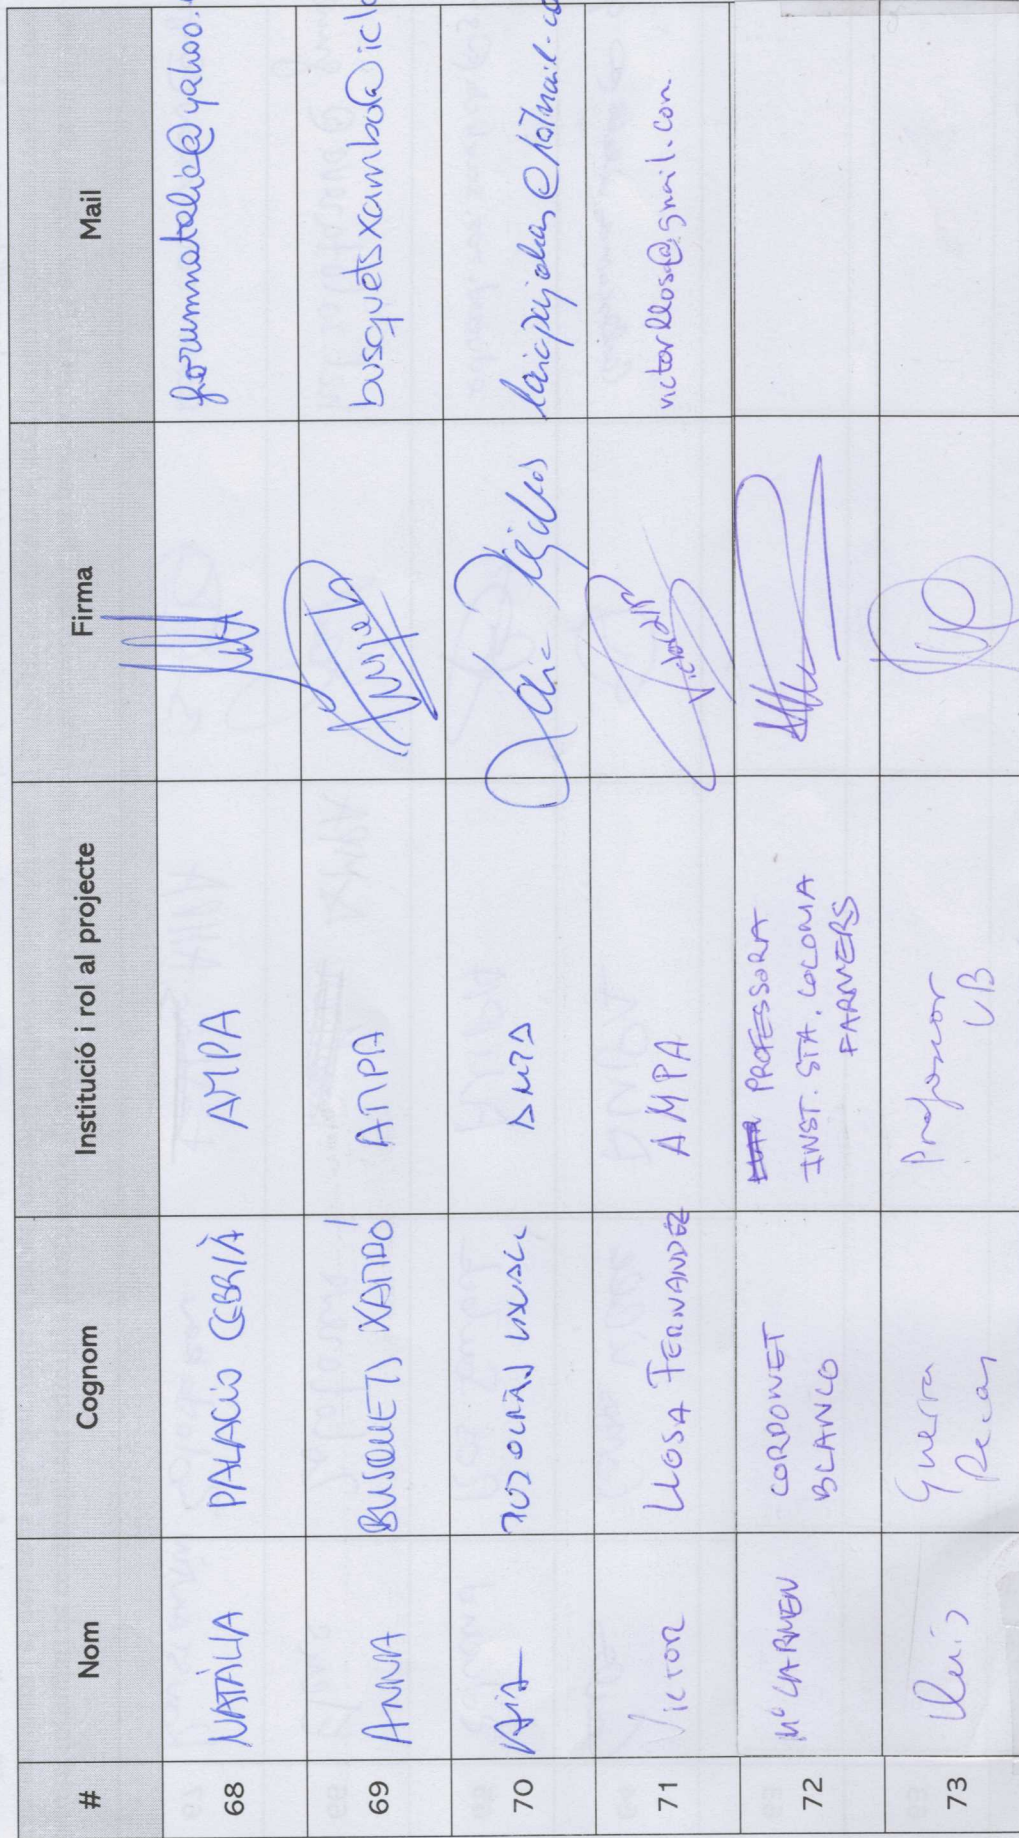 # Nom Cognom Institució i rol al projecte Firma Mail
68 NATÀLIA PALACIO CEBRIÀ AMPA forumnatalia@yahoo.
69 ANNA BUSQUETS XAMBÓ AMPA busquetsxambo@iclo
70 AMPA @hotmail.co
71 VICTOR LLOSA FERNANDEZ AMPA victorllosa@gmail.com
72 Mº CARMEN CORDONET BLANCO PROFESSORA
INST. STA. COLOMA
FARNERS
73 Lluís Guerra Recas Professor
UB